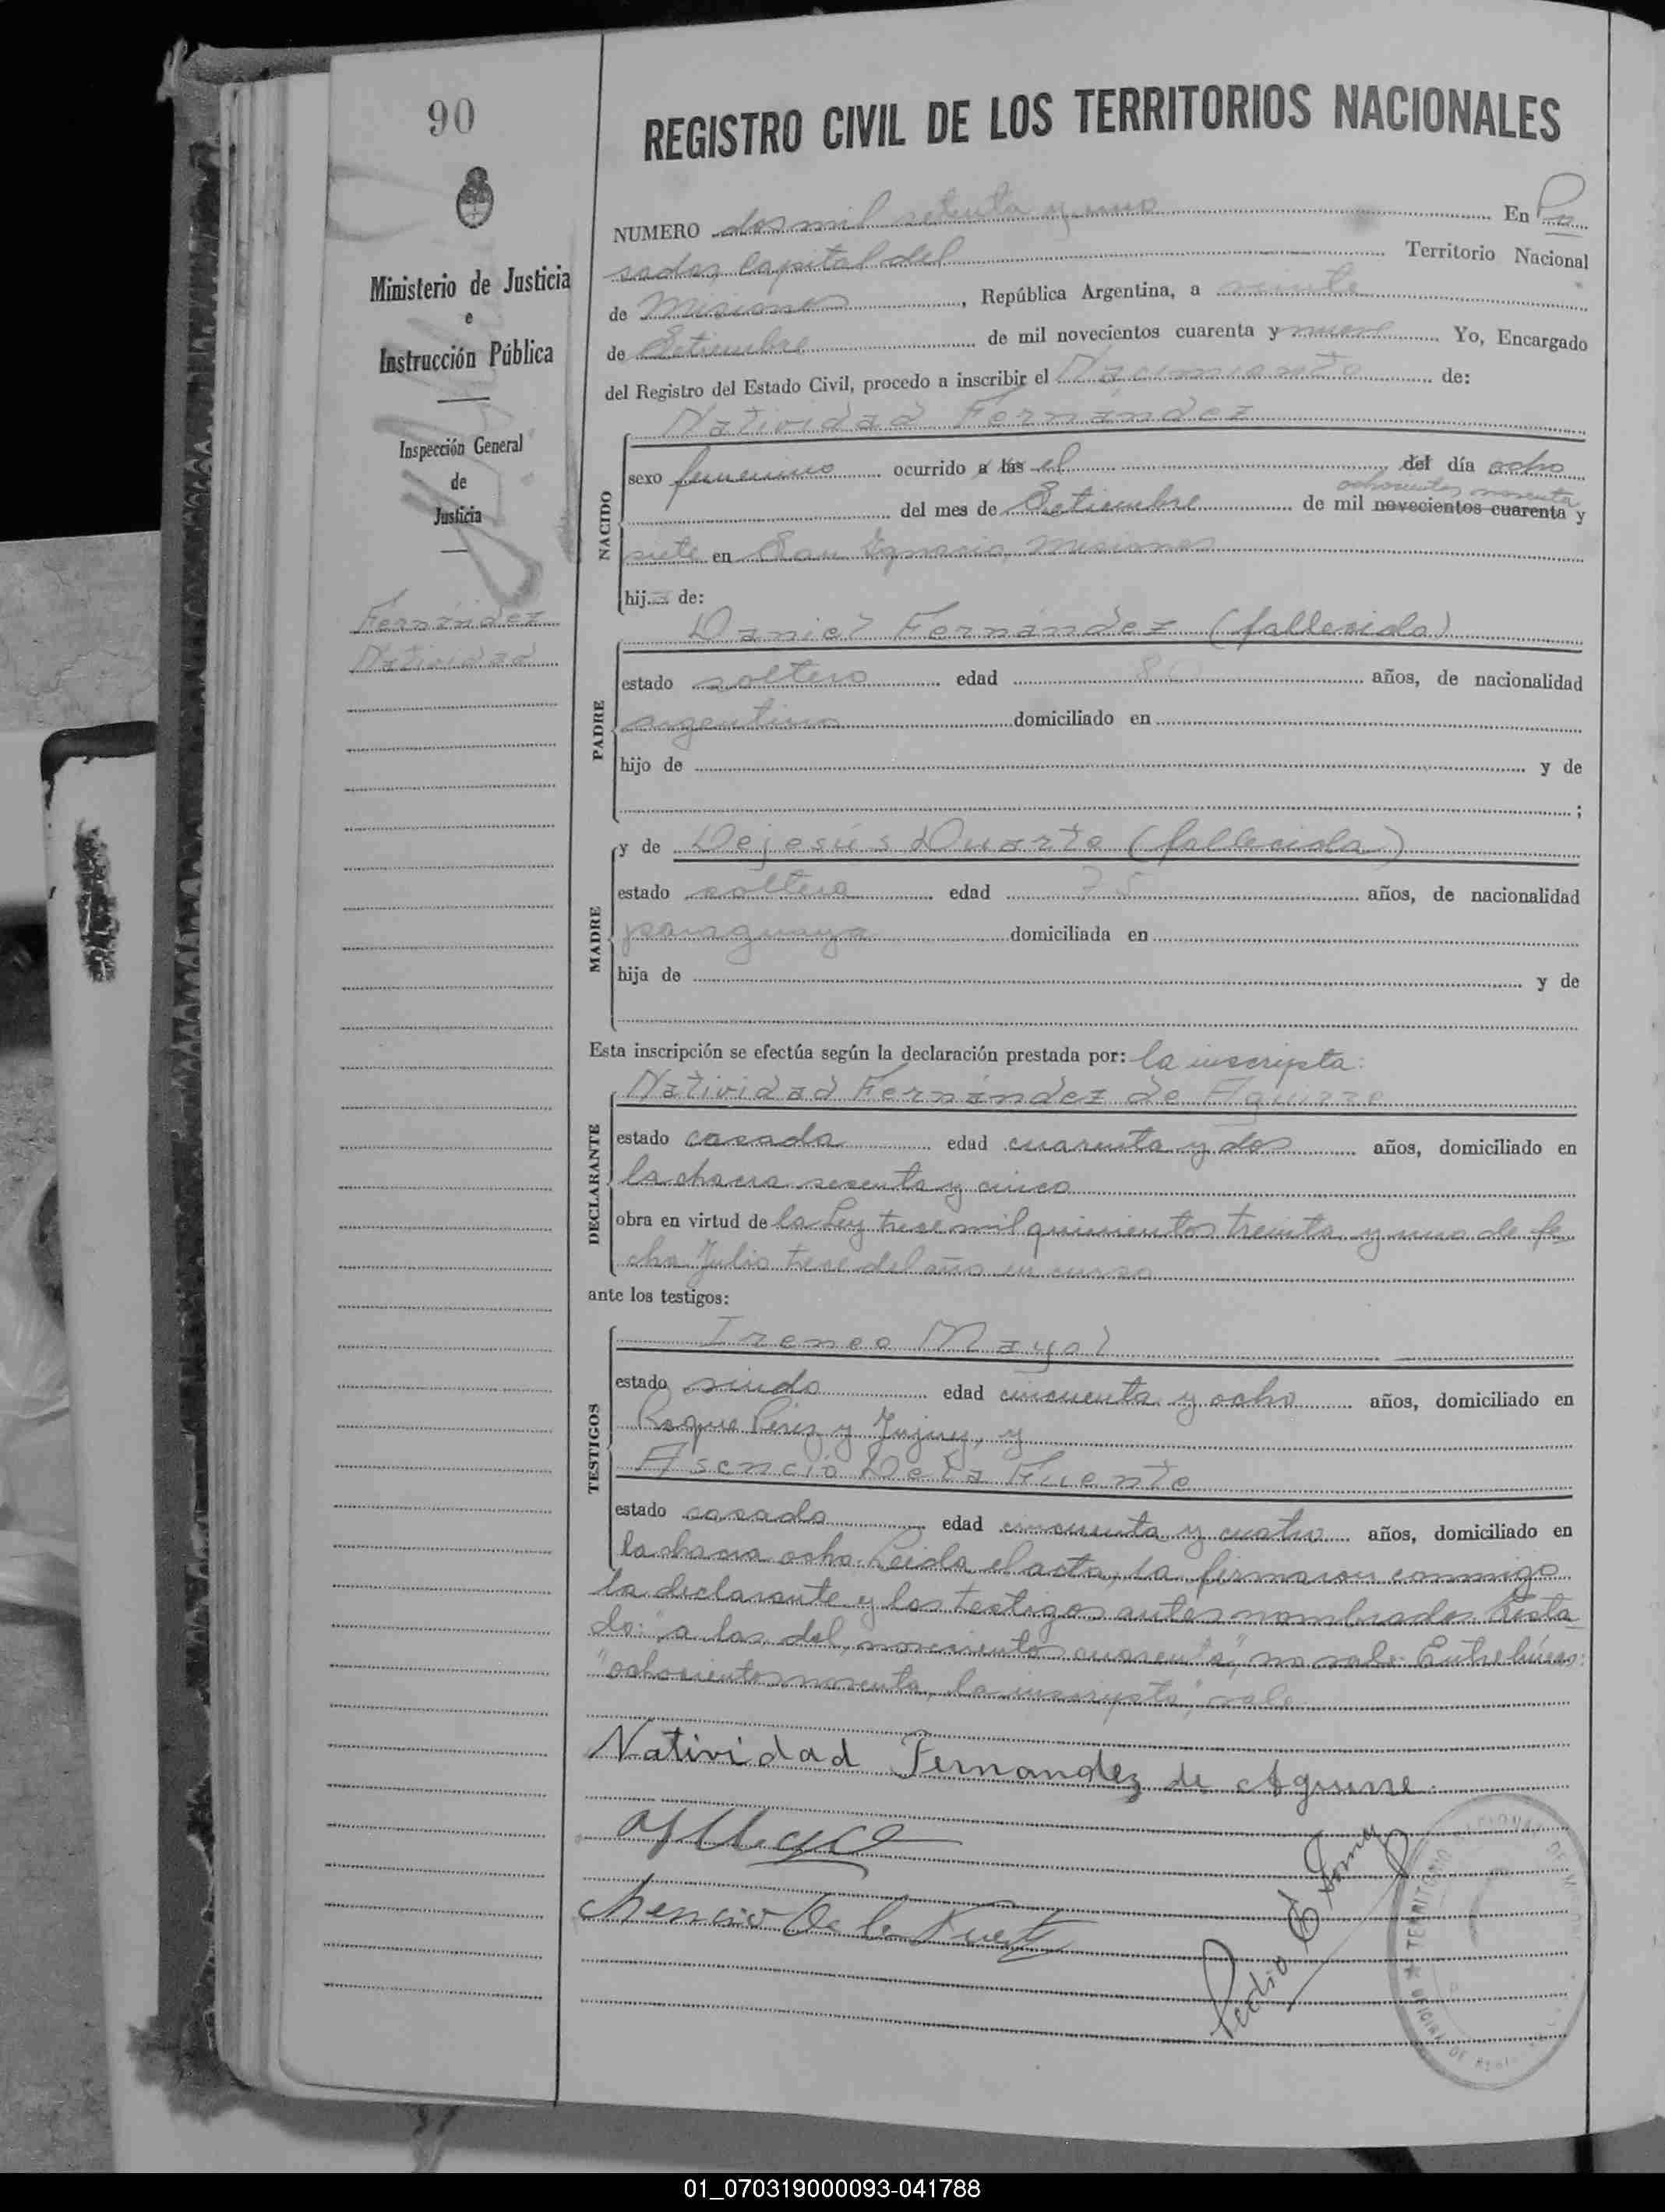 90
REGISTRO CIVIL DE LOS TERRITORIOS NACIONALES
Ministerio de Justicia
e
Instrucción Pública
Inspección General
de
Justicia
Fernández
Natividad
NUMERO dos mil setenta y uno En Po
sadas, Capital del Territorio Nacional
de Misiones, República Argentina, a veinte
de Setiembre de mil novecientos cuarenta y nueve Yo, Encargado
del Registro del Estado Civil, procedo a inscribir el Nacimiento de:
Natividad Fernández
NACIDO
sexo femenino ocurrido a las el del día ocho
ochocientos noventa
del mes de Setiembre de mil novecientos cuarenta y
siete en San Ignacio, Misiones
hija de:
PADRE
Daniel Fernández (fallecido)
estado soltero edad 80 años, de nacionalidad
argentino domiciliado en
hijo de y de
;
MADRE
y de Dejesús Duarte (fallecida)
estado soltera edad 75 años, de nacionalidad
paraguaya domiciliada en
hija de y de
Esta inscripción se efectúa según la declaración prestada por: la inscripta:
DECLARANTE
Natividad Fernández de Aguirre
estado casada edad cuarenta y dos años, domiciliado en
la chacra sesenta y cinco
obra en virtud de la Ley trece mil quinientos treinta y uno de fe
cha Julio trece del año en curso
ante los testigos:
TESTIGOS
Ireneo Mayol
estado viudo edad cincuenta y ocho años, domiciliado en
Roque Pérez y Jujuy, y
Asencio De la Fuente
estado casado edad cincuenta y cuatro años, domiciliado en
la chacra ocho. Leída el acta, la firmaron conmigo
la declarante y los testigos antes nombrados. Testa
do: "a las, del, novecientos cuarenta", no vale. Entrelíneas:
"ochocientos noventa, la inscripta", vale.
Natividad Fernandez de Aguirre
Asencio De la Fuente
Pedro
TERRITORIO NACIONAL DE
OFICINA DE
01_070319000093-041788